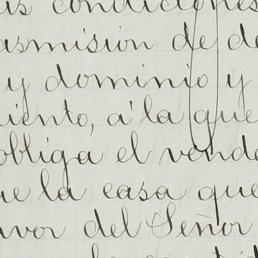 us condiciones
asmision de de
y dominio y
iento, á la que
obliga el vende
ue la casa que
avor del Señor